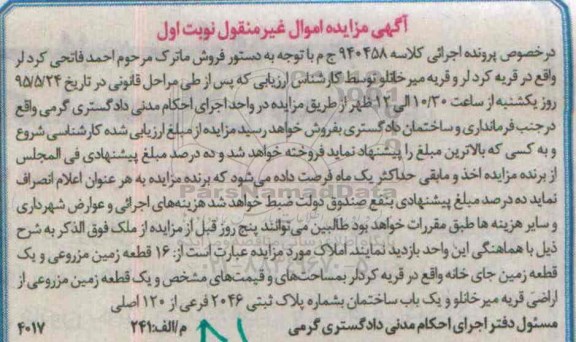 آگهی مزایده اموال غیر منقول نوبت اول
در خصوص پرونده اجرائی کلاسه ۹۴۰۴۵۸ ج م با توجه به دستور فروش ماترک مرحوم احمد فاتحی کرد لر
واقع در قریه کرد لر و قریه میر خانلو توسط کارشناس ارزیابی که پس از طی مراحل قانونی در تاریخ ۹۵/۵/۲۴
روز یکشنبه از ساعت ۱۰/۳۰ الی ۱۲ ظهر از طریق مزایده در واحد اجرای احکام مدنی دادگستری گرمی واقع
در جنب فرمانداری و ساختمان دادگستری بفروش خواهد رسید مزایده از مبلغ ارزیابی شده کارشناسی شروع
و به کسی که بالاترین مبلغ را پیشنهاد نماید فروخته خواهد شد و ده درصد مبلغ پیشنهادی فی المجلس
از برنده مزایده اخذ و مابقی حداکثر یک ماه فرصت داده می‌شود که برنده مزایده به هر عنوان اعلام انصراف
نماید ده درصد مبلغ پیشنهادی بنفع صندوق دولت ضبط خواهد شد هزینه‌های اجرائی و عوارض شهرداری
و سایر هزینه ها طبق مقررات خواهد بود طالبین می‌توانند پنج روز قبل از مزایده از ملک فوق الذکر به شرح
ذیل با هماهنگی این واحد بازدید نمایند املاک مورد مزایده عبارت است از: ۱۶ قطعه زمین مزروعی و یک
قطعه زمین جای خانه واقع در قریه کردلر بمساحت‌های و قیمت‌های مشخص و یک قطعه زمین مزروعی از
اراضی قریه میر خانلو و یک باب ساختمان بشماره پلاک ثبتی ۲۰۴۶ فرعی از ۱۲۰ اصلی
مسئول دفتر اجرای احکام مدنی دادگستری گرمی م/الف:۲۴۱ ۴۰۱۷
ParsNamadData